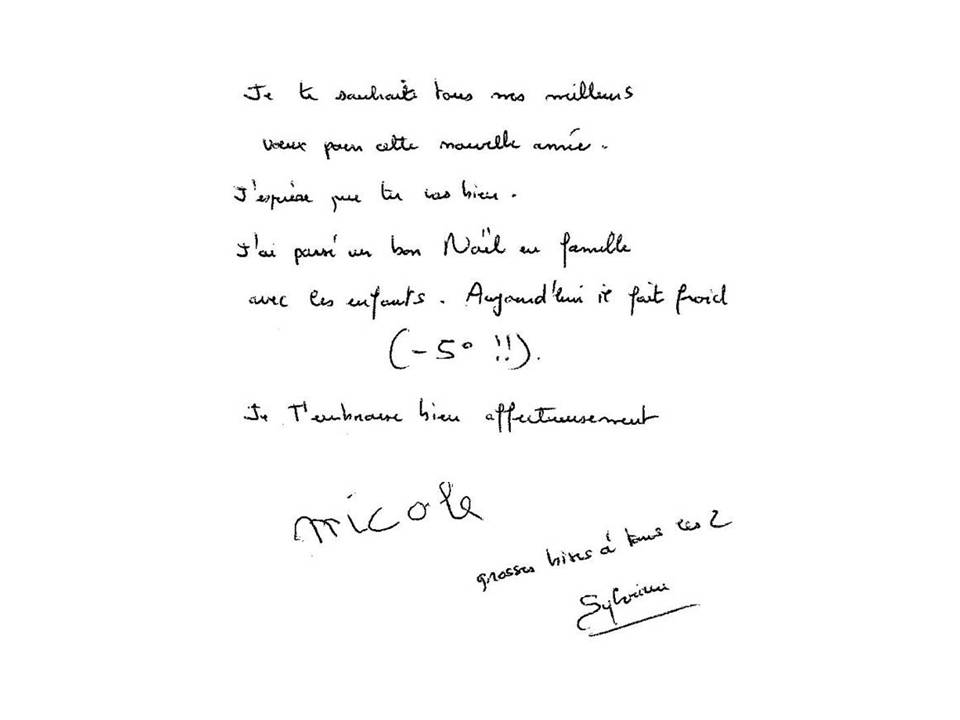 Je te souhaite tous mes meilleurs
voeux pour cette nouvelle année.
J'espère que tu vas bien.
J'ai passé un bon Noël en famille
avec les enfants. Aujourd'hui il fait froid
(-5° !!).
Je T'embrasse bien affectueusement
nicole
grosses bises à tous les 2